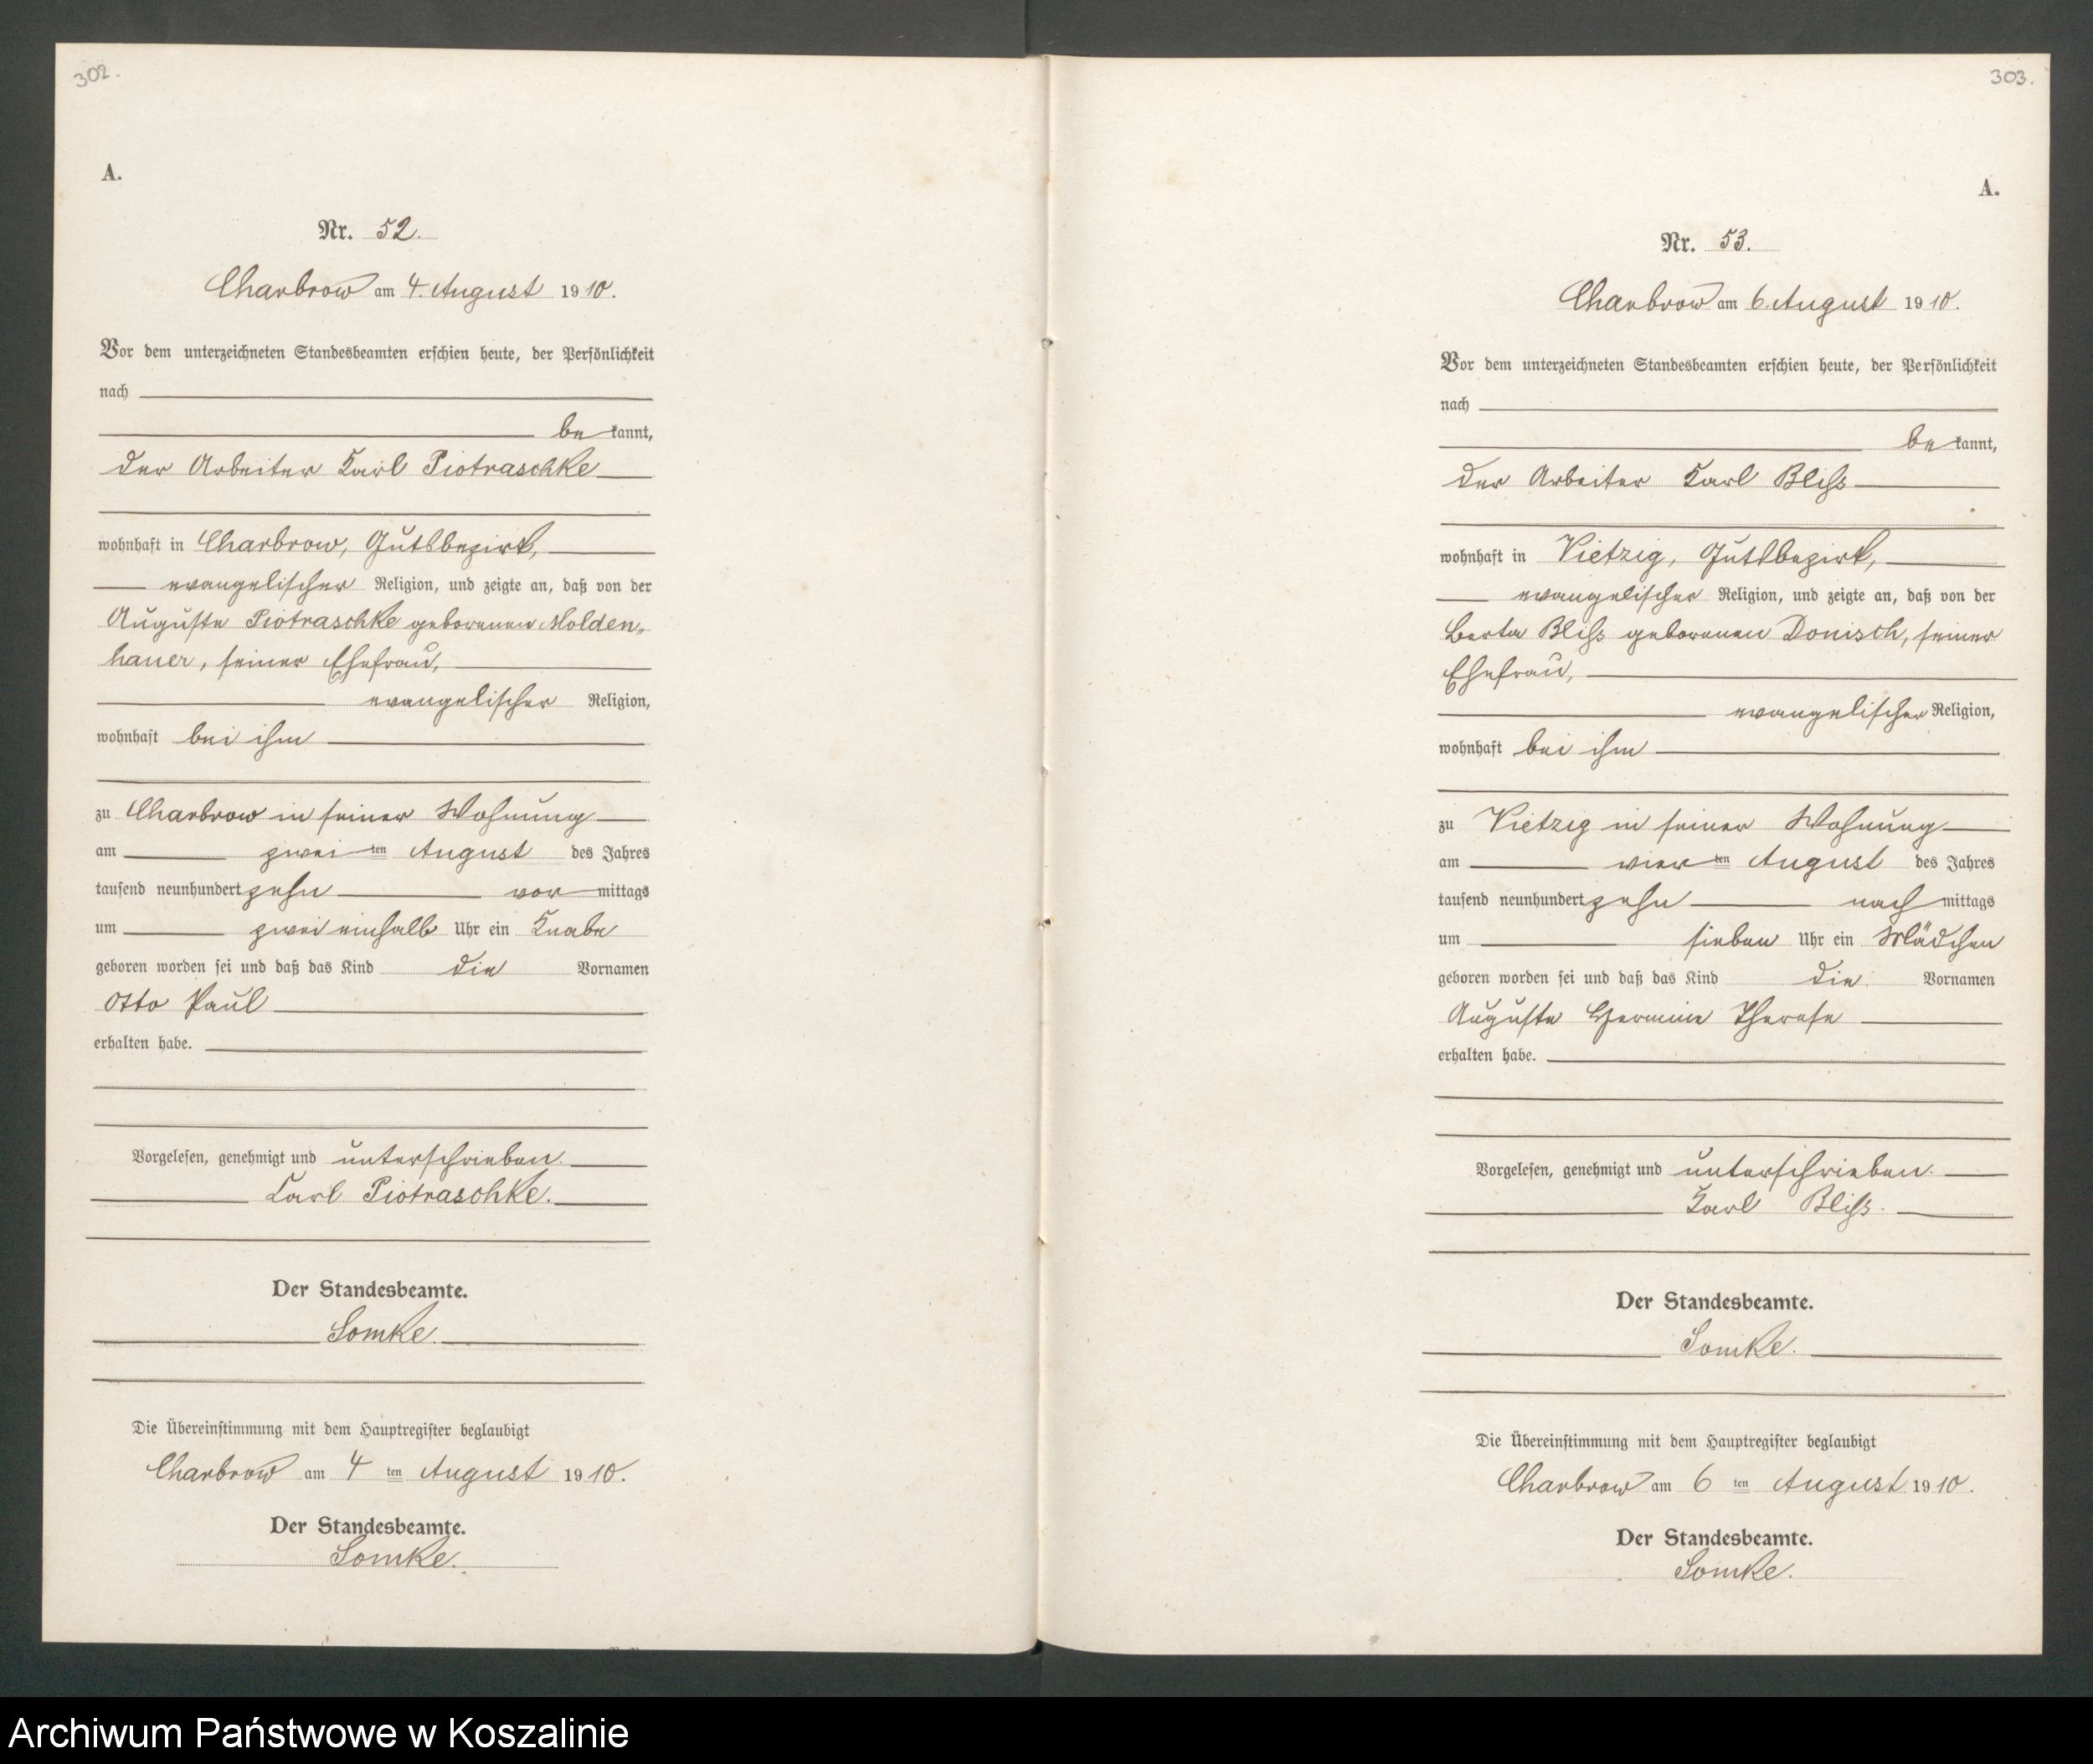 302.
A.
Nr. 52.
Charbrow am 4. August 1910.
Vor dem unterzeichneten Standesbeamten erschien heute, der Persönlichkeit
nach
be kannt,
der Arbeiter Karl Piotraschke
wohnhaft in Charbrow, Gutsbezirk,
evangelischer Religion, und zeigte an, daß von der
Auguste Piotraschke geborenen Molden-
hauer, seiner Ehefrau,
evangelischer Religion,
wohnhaft bei ihm
zu Charbrow in seiner Wohnung
am zwei ten August des Jahres
tausend neunhundert zehn vor mittags
um zwei einhalb Uhr ein Knabe
geboren worden sei und daß das Kind die Vornamen
Otto Paul
erhalten habe.
Vorgelesen, genehmigt und unterschrieben.
Karl Piotraschke.
Der Standesbeamte.
Somke.
Die Übereinstimmung mit dem Hauptregister beglaubigt
Charbrow am 4 ten August 1910.
Der Standesbeamte.
Somke.
303.
A.
Nr. 53.
Charbrow am 6. August 1910.
Vor dem unterzeichneten Standesbeamten erschien heute, der Persönlichkeit
nach
be kannt,
der Arbeiter Karl Bliß
wohnhaft in Vietzig, Gutsbezirk,
evangelischer Religion, und zeigte an, daß von der
Berta Bliß geborenen Donisch, seiner
Ehefrau,
evangelischer Religion,
wohnhaft bei ihm
zu Vietzig in seiner Wohnung
am vier ten August des Jahres
tausend neunhundert zehn nach mittags
um sieben Uhr ein Mädchen
geboren worden sei und daß das Kind die Vornamen
Auguste Hermine Therese
erhalten habe.
Vorgelesen, genehmigt und unterschrieben.
Karl Bliß.
Der Standesbeamte.
Somke.
Die Übereinstimmung mit dem Hauptregister beglaubigt
Charbrow am 6 ten August 1910.
Der Standesbeamte.
Somke.
Archiwum Państwowe w Koszalinie